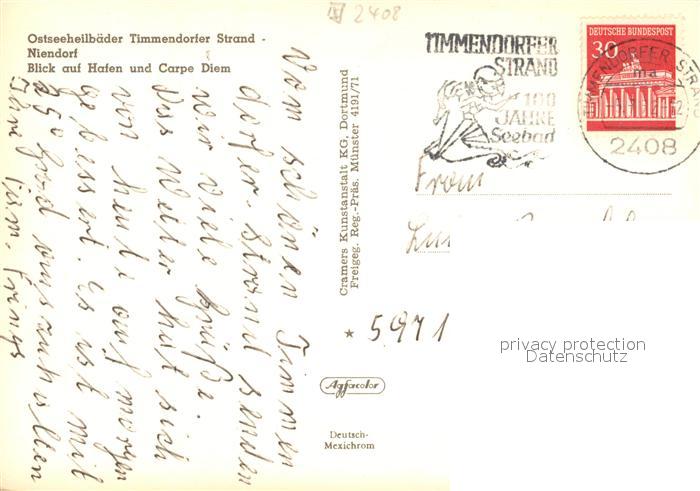 IV 2408
Ostseeheilbäder Timmendorfer Strand -
Niendorf
Blick auf Hafen und Carpe Diem
Vom schönen Timmen
dorfer-Strand senden
wir viele Grüße.
Das Wetter hat sich
von heute auf morgen
gebessert. Es ist mit
25° Grad auszuhalten
Ihre Fam. Frings
Cramers Kunstanstalt KG, Dortmund
Freigeg. Reg.-Präs. Münster 4191/71
* 5971
Agfacolor
Deutsch-
Mexichrom
TIMMENDORFER
STRAND
100
JAHRE
Seebad
DEUTSCHE BUNDESPOST
30
TIMMENDORFER STRAND
ma
2408
Frau
privacy protection
Datenschutz